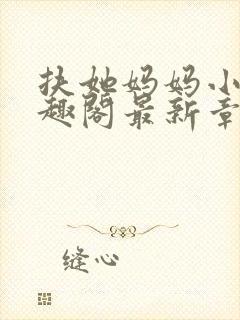 扶她妈妈小
趣阁最新章
缝心